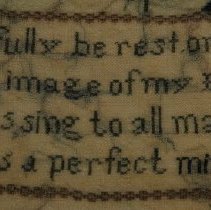 fully be restor
image of my
ssing to all ma
s a perfect mi